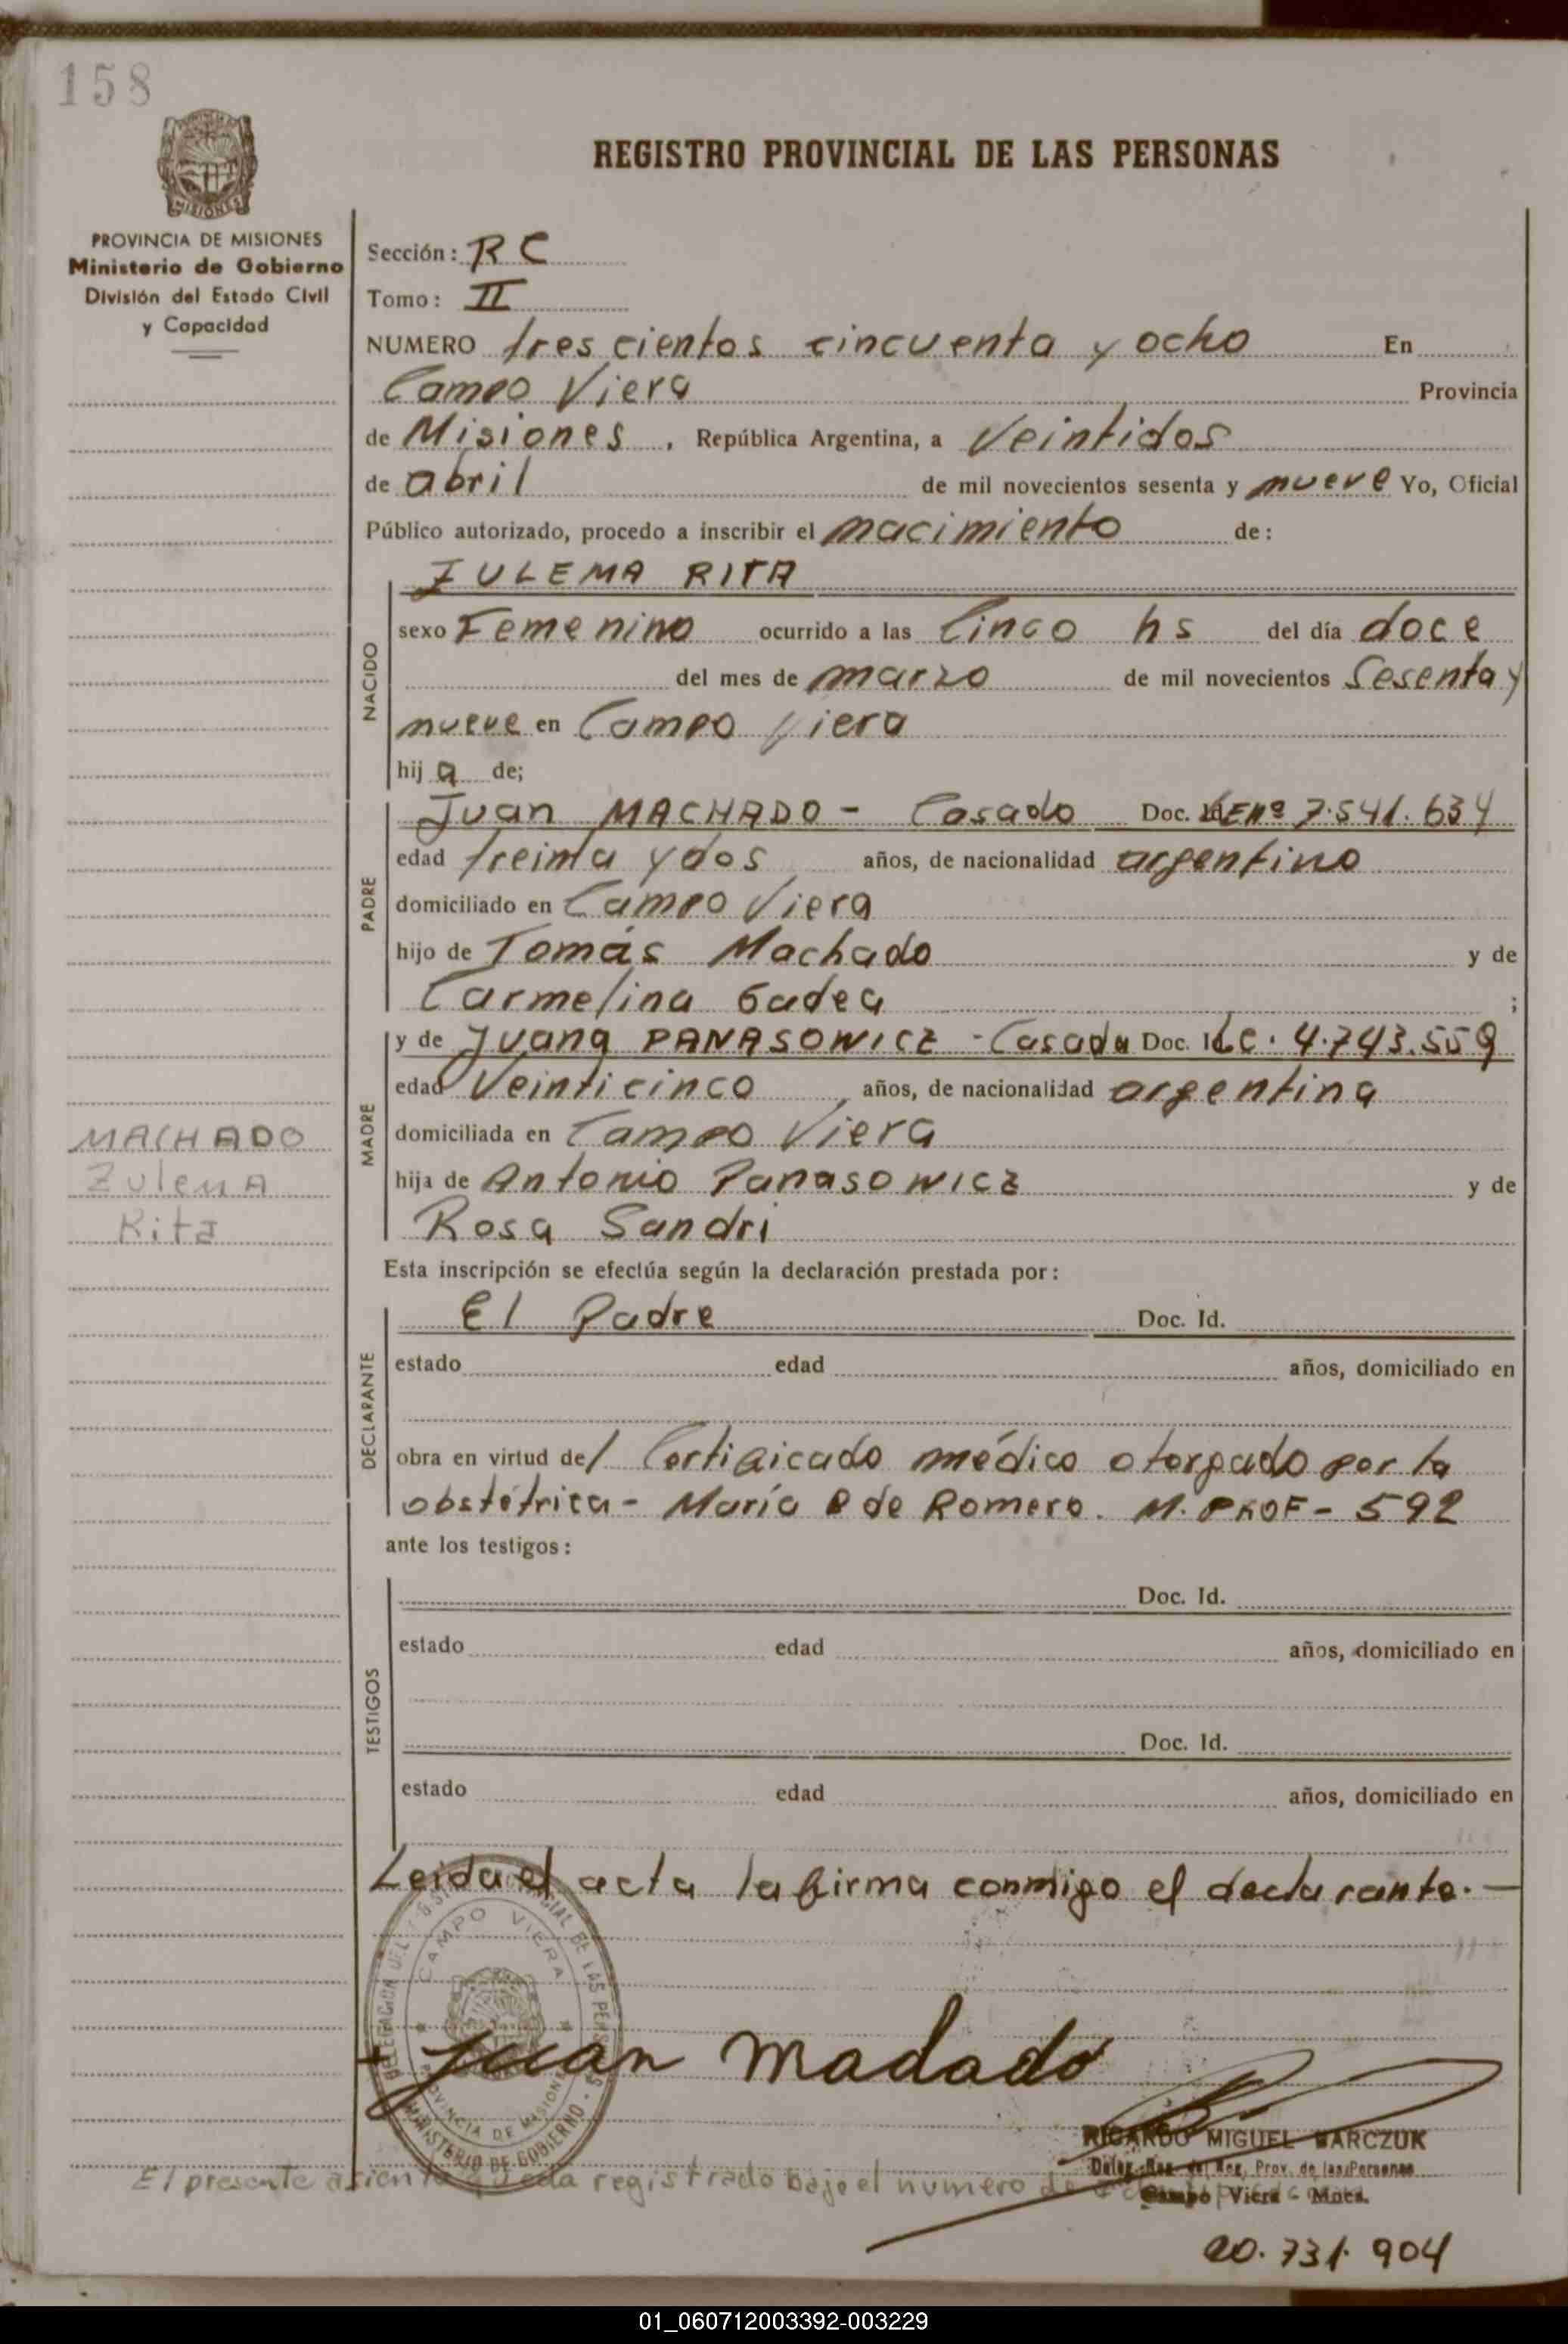 158
MISIONES
REGISTRO PROVINCIAL DE LAS PERSONAS
PROVINCIA DE MISIONES
Ministerio de Gobierno
División del Estado Civil
y Capacidad
Sección: R C
Tomo: II
NUMERO tres cientos cincuenta y ocho En
Campo Viera Provincia
de Misiones, República Argentina, a Veintidos
de abril de mil novecientos sesenta y nueve Yo, Oficial
Público autorizado, procedo a inscribir el nacimiento de:
NACIDO
ZULEMA RITA
sexo Femenino ocurrido a las Cinco hs del día doce
del mes de marzo de mil novecientos Sesenta y
nueve en Campo Viera
hij a de;
PADRE
Juan MACHADO - Casado Doc. Id LE Nº 7.541.634
edad treinta y dos años, de nacionalidad argentino
domiciliado en Campo Viera
hijo de Tomás Machado y de
Carmelina Gadea ;
MADRE
y de Juana PANASOWICZ - Casada Doc. Id LC. 4.743.559
edad Veinticinco años, de nacionalidad argentina
domiciliada en Campo Viera
hija de Antonio Panasowicz y de
Rosa Sandri
MACHADO
Zulema
Rita
Esta inscripción se efectúa según la declaración prestada por:
DECLARANTE
El Padre Doc. Id.
estado edad años, domiciliado en
obra en virtud del Certificado médico otorgado por la
obstétrica - María P de Romero. M. PROF - 592
ante los testigos:
TESTIGOS
Doc. Id.
estado edad años, domiciliado en
Doc. Id.
estado edad años, domiciliado en
Leida el acta la firma conmigo el declarante. —
DELEGACION DEL REGISTRO PROVINCIAL DE LAS PERSONAS
CAMPO VIERA
PROVINCIA DE MISIONES
MINISTERIO DE GOBIERNO
Juan Madado
RICARDO MIGUEL WARCZUK
Deleg. Reg. del Reg. Prov. de las Personas
Campo Viera - Mnes.
El presente asiento queda registrado bajo el numero de
20.731.904
01_060712003392-003229